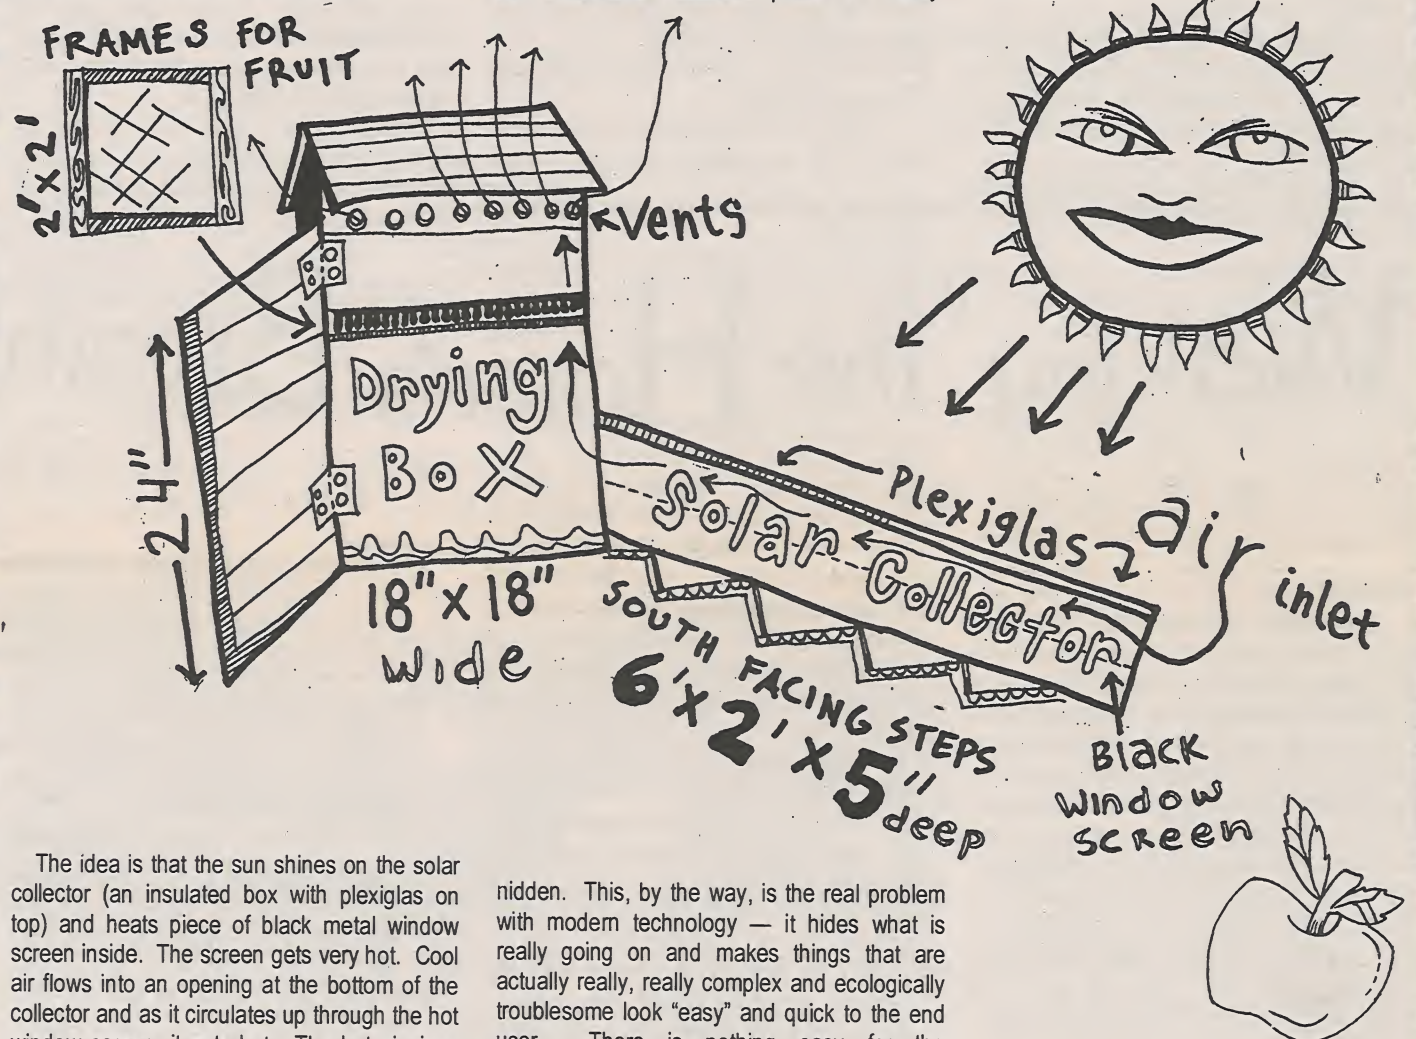 FRAMES FOR
FRUIT
2'x2'
Vents
Drying
Box
24"
18"x18"
Wide
Plexiglas
air
inlet
Solar Collector
SOUTH FACING STEPS
6'x2'x5"
deep
Black
Window
Screen
The idea is that the sun shines on the solar
collector (an insulated box with plexiglas on
top) and heats piece of black metal window
screen inside. The screen gets very hot. Cool
air flows into an opening at the bottom of the
collector and as it circulates up through the hot
nidden. This, by the way, is the real problem
with modern technology — it hides what is
really going on and makes things that are
actually really, really complex and ecologically
troublesome look “easy” and quick to the end
user. There is nothing easy for the